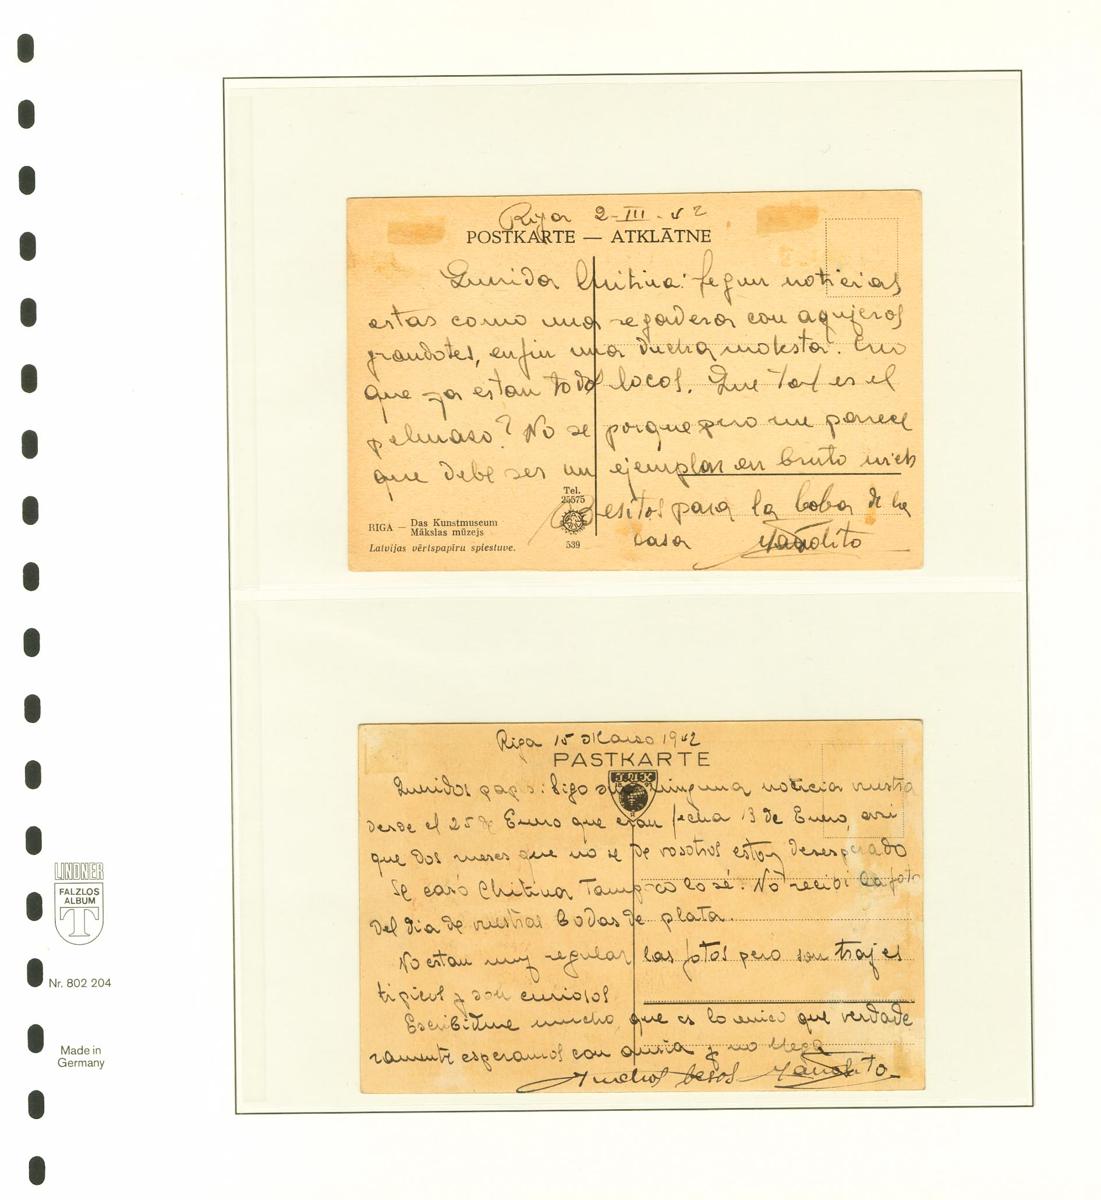 Riga 2-III-42
POSTKARTE — ATKLĀTNE
Querida Chitina: Segun noticias
estas como una regadera con agujeros
grandotes, enfin una ducha molesta. Creo
que ya estan todos locos. Que tal es el
pelmaso? No se porque pero me parece
que debe ser un ejemplar en bruto
Besitos para la boba de la
casa Manolito
Tel.
25575
RIGA — Das Kunstmuseum
Mākslas mūzejs
539
Latvijas vērtspapīru spiestuve.
Riga 15 Marzo 1942
PASTKARTE
Queridos papis: Sigo sin ninguna noticia vuestra
desde el 25 de Enero que eran fecha 13 de Enero, asi
que dos meses que no se de vosotros estoy desesperado
Se casó Chitina Tampoco lo sé. No recibi la foto
del dia de vuestras Bodas de plata.
No estan muy regular las fotos pero son trajes
tipicos y son curiosos
Escribirme mucho, que es lo unico que verdade
ramente esperamos con ansia y no llega
Muchos besos Manolito
LINDNER
FALZLOS
ALBUM
T
Nr. 802 204
Made in
Germany